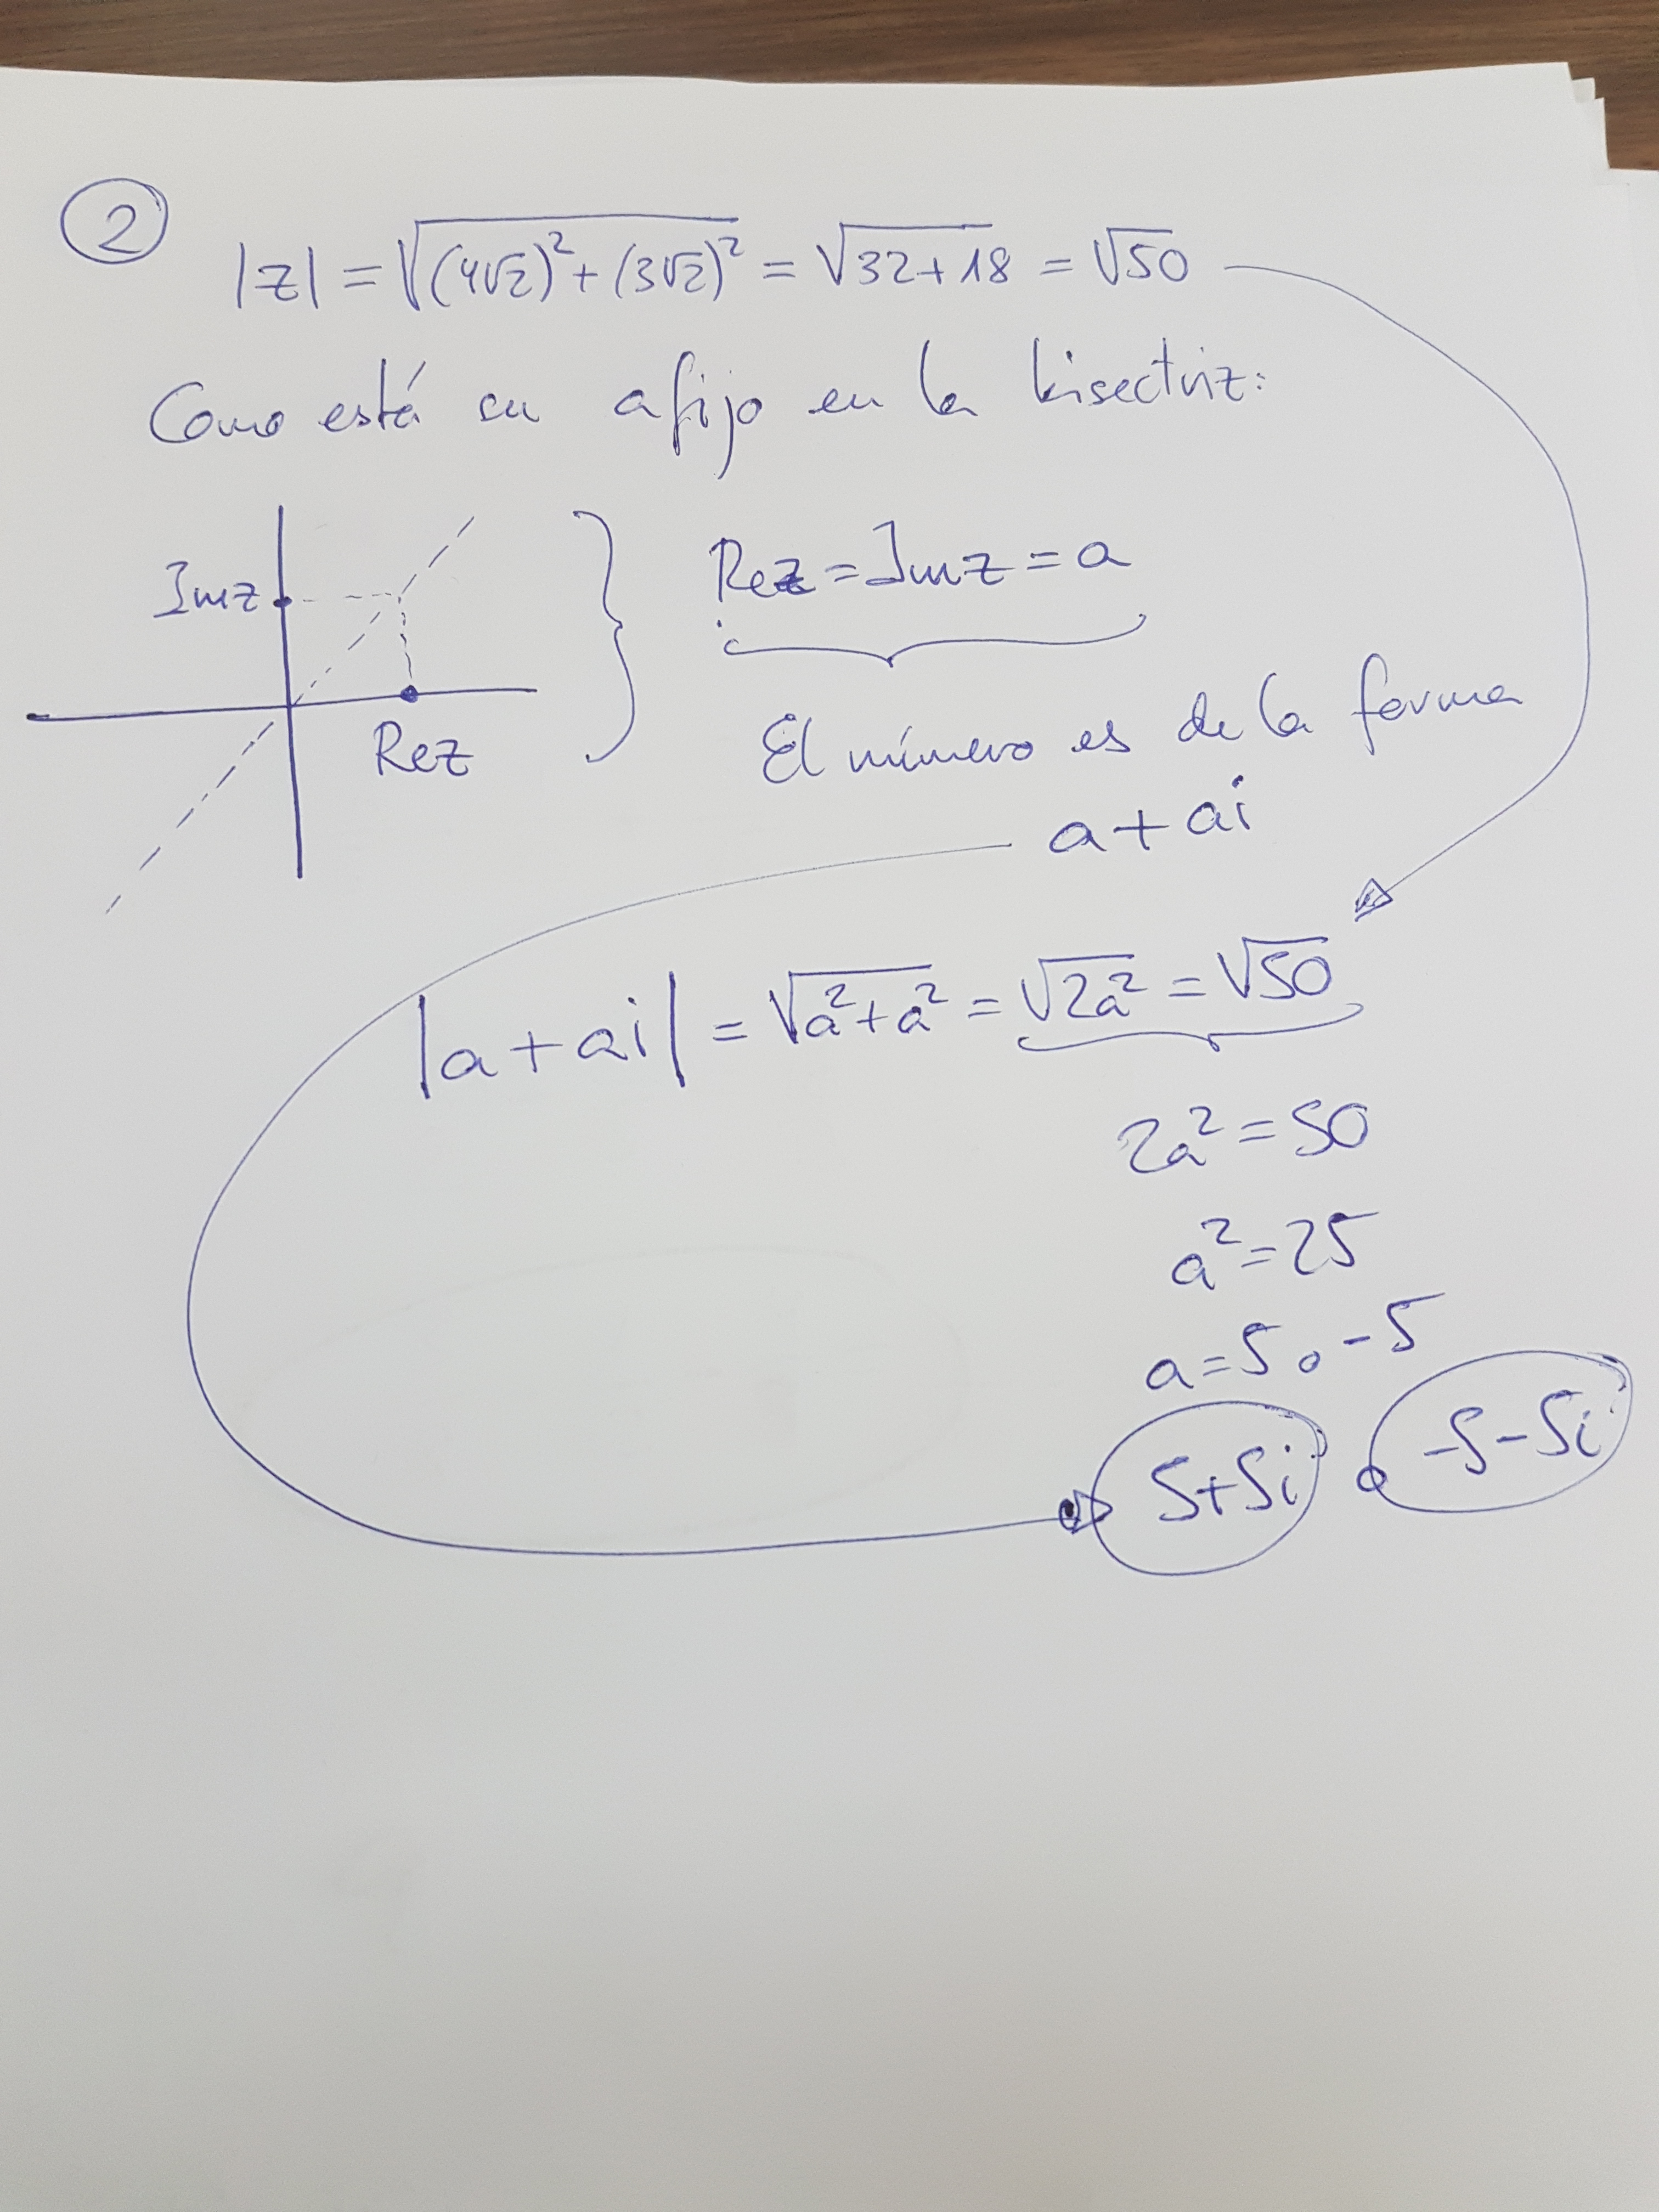 2
|z| = √((4√2)² + (3√2)²) = √(32+18) = √50
Como está su afijo en la bisectriz:
Imz
Rez
Rez = Imz = a
El número es de la forma
a + ai
|a + ai| = √(a² + a²) = √(2a²) = √50
2a² = 50
a² = 25
a = 5 o -5
5+5i o -5-5i